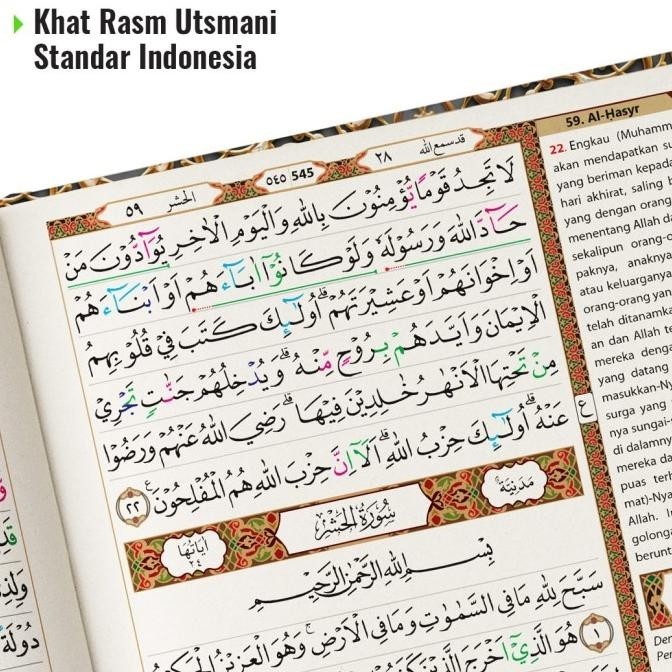 Khat Rasm Utsmani
Standar Indonesia
قد سمع الله ٢٨
٥٤٥ 545
الحشر ٥٩
لَا تَجِدُ قَوْمًا يُّؤْمِنُوْنَ بِاللّٰهِ وَالْيَوْمِ الْاٰخِرِ يُوَاۤدُّوْنَ مَنْ
حَاۤدَّ اللّٰهَ وَرَسُوْلَهٗ وَلَوْ كَانُوْٓا اٰبَاۤءَهُمْ اَوْ اَبْنَاۤءَهُمْ
اَوْ اِخْوَانَهُمْ اَوْ عَشِيْرَتَهُمْۗ اُولٰۤىِٕكَ كَتَبَ فِيْ قُلُوْبِهِمُ
الْاِيْمَانَ وَاَيَّدَهُمْ بِرُوْحٍ مِّنْهُۗ وَيُدْخِلُهُمْ جَنّٰتٍ تَجْرِيْ
مِنْ تَحْتِهَا الْاَنْهٰرُ خٰلِدِيْنَ فِيْهَاۗ رَضِيَ اللّٰهُ عَنْهُمْ وَرَضُوْا
عَنْهُۗ اُولٰۤىِٕكَ حِزْبُ اللّٰهِۗ اَلَآ اِنَّ حِزْبَ اللّٰهِ هُمُ الْمُفْلِحُوْنَ ࣖ ٢٢
مَدَنِيَّة
سُوْرَةُ الْحَشْرِ
اٰيَاتُهَا
٢٤
بِسْمِ اللّٰهِ الرَّحْمٰنِ الرَّحِيْمِ
سَبَّحَ لِلّٰهِ مَا فِى السَّمٰوٰتِ وَمَا فِى الْاَرْضِۚ وَهُوَ الْعَزِيْزُ الْحَكِيْمُ
١ هُوَ الَّذِيْٓ اَخْرَجَ الَّذِيْنَ
ع
59. Al-Ḥasyr
22. Engkau (Muhamm
akan mendapatkan su
yang beriman kepada
hari akhirat, saling b
yang dengan orang
menentang Allah da
sekalipun orang-o
paknya, anaknya
atau keluarganya
orang-orang yan
telah ditanamka
an dan Allah te
mereka denga
yang datang
masukkan-Ny
surga yang
nya sungai-
di dalamny
mereka da
puas terh
mat)-Nya
Allah. I
golonga
berunt